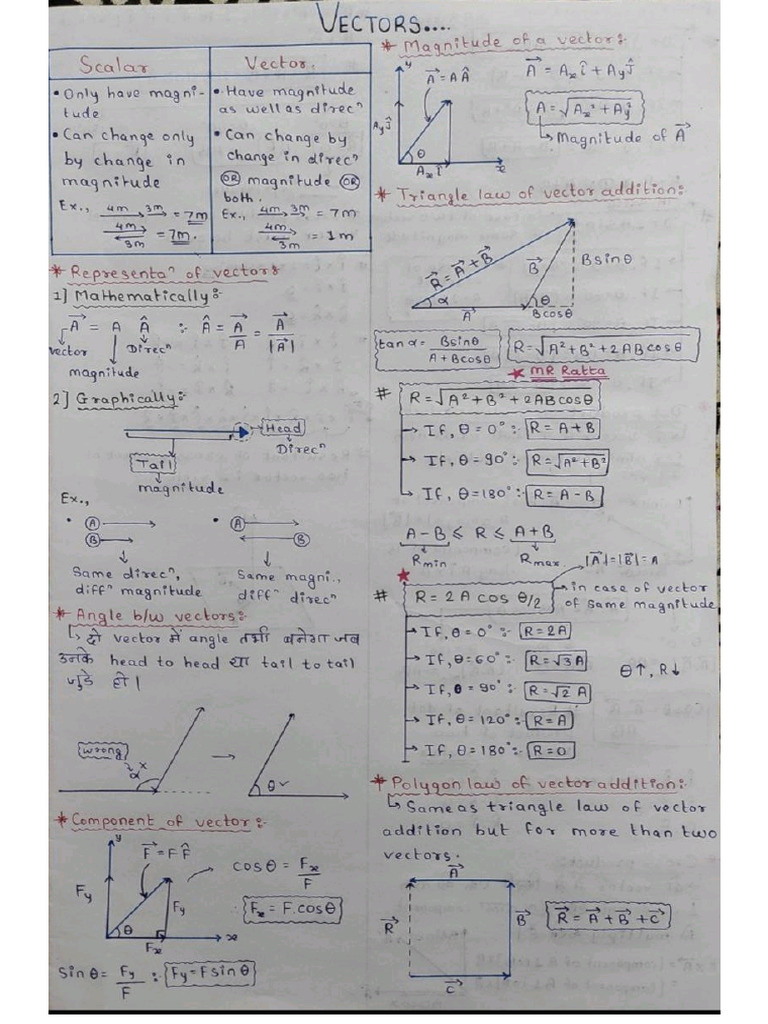 VECTORS....
Scalar
• Only have magni-
tude
• Can change only
by change in
magnitude
Ex., 4m 3m = 7m
4m
3m = 7m.
Vector.
• Have magnitude
as well as direcⁿ
• Can change by
change in direcⁿ
OR magnitude OR
both.
Ex., 4m 3m = 7m
4m
3m = 1m
* Representaⁿ of vectors
1] Mathematically:-
A⃗ = A Â ∵ Â = A⃗/A = A⃗/|A⃗|
vector Direcⁿ
magnitude
2] Graphically:-
Head
Direcⁿ
Tail
magnitude
Ex.,
• A
B
Same direcⁿ,
diffⁿ magnitude
• A
B
Same magni.,
diffⁿ direcⁿ
* Angle b/w vectors:-
↳ दो vector में angle तभी बनेगा जब
उनके head to head या tail to tail
जुडे हो।
wrong
α x
θ ✓
* Component of vector:-
y
F⃗ = F F̂
Fy
Fy
θ
Fx
x
cosθ = Fx/F
Fx = F.cosθ
Sinθ = Fy/F ∴ Fy = F sinθ
* Magnitude of a vector:-
y
A⃗ = A Â
Ay ĵ
θ
Ax î
x
A⃗ = Ax î + Ay ĵ
A = √Ax² + Ay²
↳ Magnitude of A⃗
* Triangle law of vector addition:-
R⃗ = A⃗ + B⃗
B⃗
B sinθ
α
A⃗
θ
B cosθ
tan α = B sinθ / A + B cosθ
R = √A² + B² + 2AB cosθ
★ MR Ratta
# R = √A² + B² + 2AB cosθ
→ If, θ = 0° ∵ R = A + B
→ If, θ = 90° ∵ R = √A² + B²
→ If, θ = 180° ∵ R = A - B
A - B ≤ R ≤ A + B
Rmin Rmax.
★
|A⃗| = |B⃗| = A
# R = 2 A cos θ/2
→ in case of vector
of same magnitude
→ If, θ = 0° ∵ R = 2A
→ If, θ = 60° ∵ R = √3 A
→ If, θ = 90° ∵ R = √2 A
→ If, θ = 120° ∵ R = A
→ If, θ = 180° ∵ R = 0
θ↑, R↓
* Polygon law of vector addition:-
↳ Same as triangle law of vector
addition but for more than two
vectors.
A⃗
R⃗
B⃗
C⃗
R⃗ = A⃗ + B⃗ + C⃗